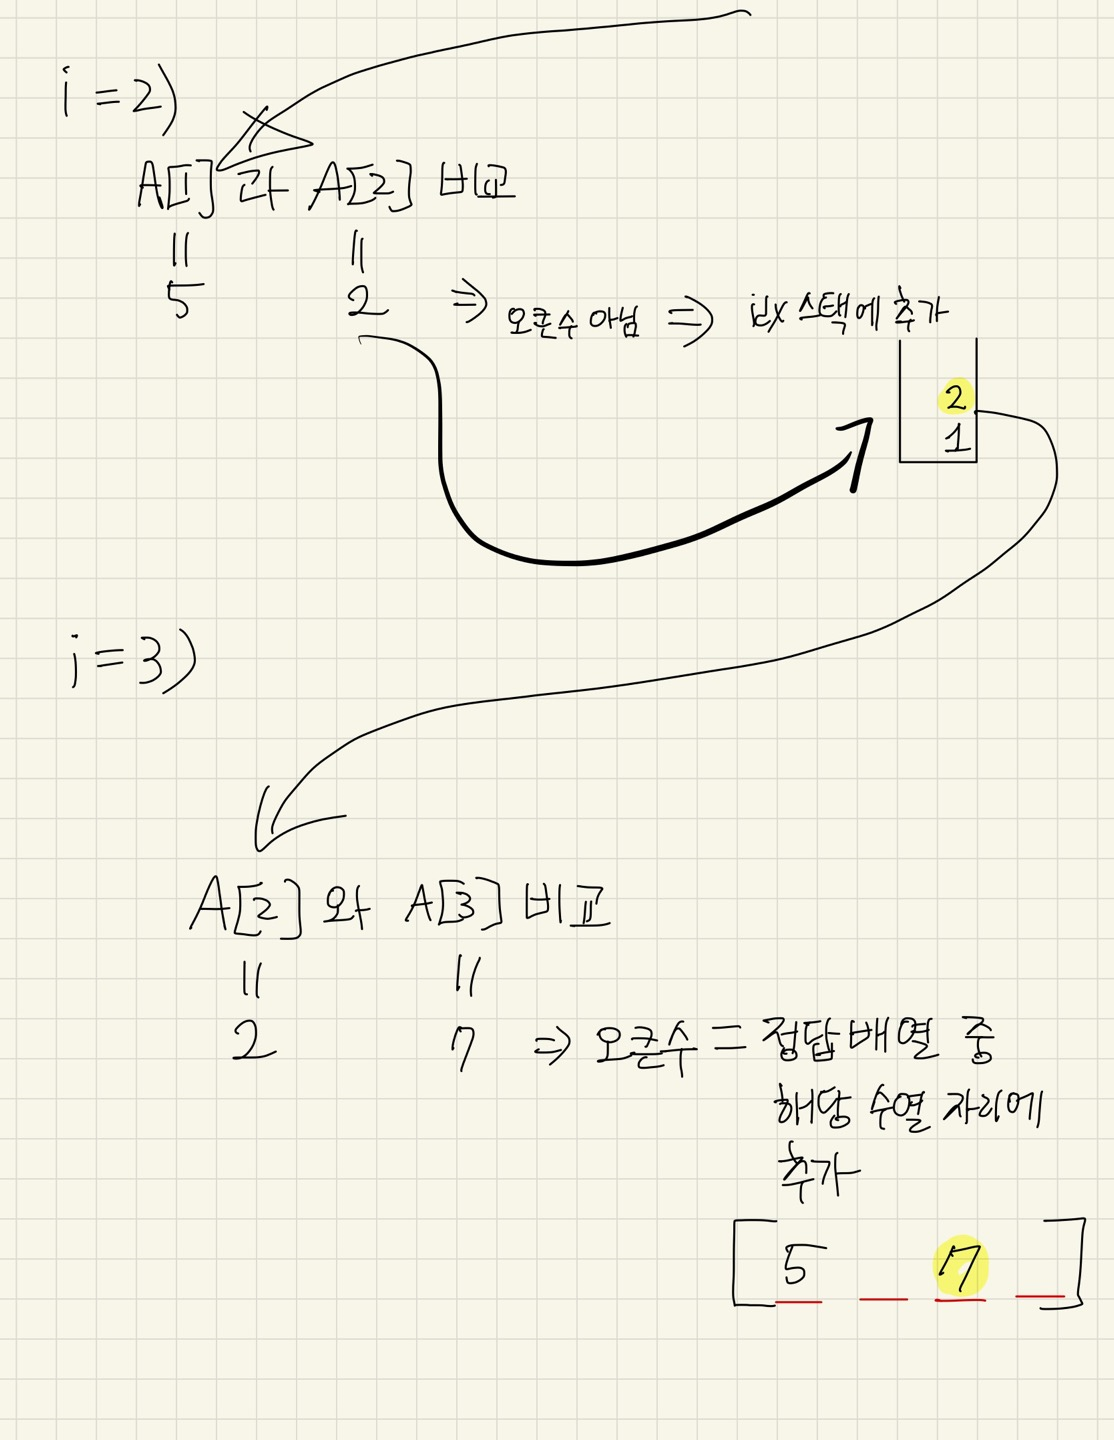 i = 2)
A[1] 과 A[2] 비교
||  ||
5  2 ⇒ 오큰수 아님 ⇒ idx 스택에 추가
2
1
i = 3)
A[2] 와 A[3] 비교
||  ||
2  7 ⇒ 오큰수 = 정답 배열 중
해당 수열 자리에
추가
[ 5 _ 7 _ ]